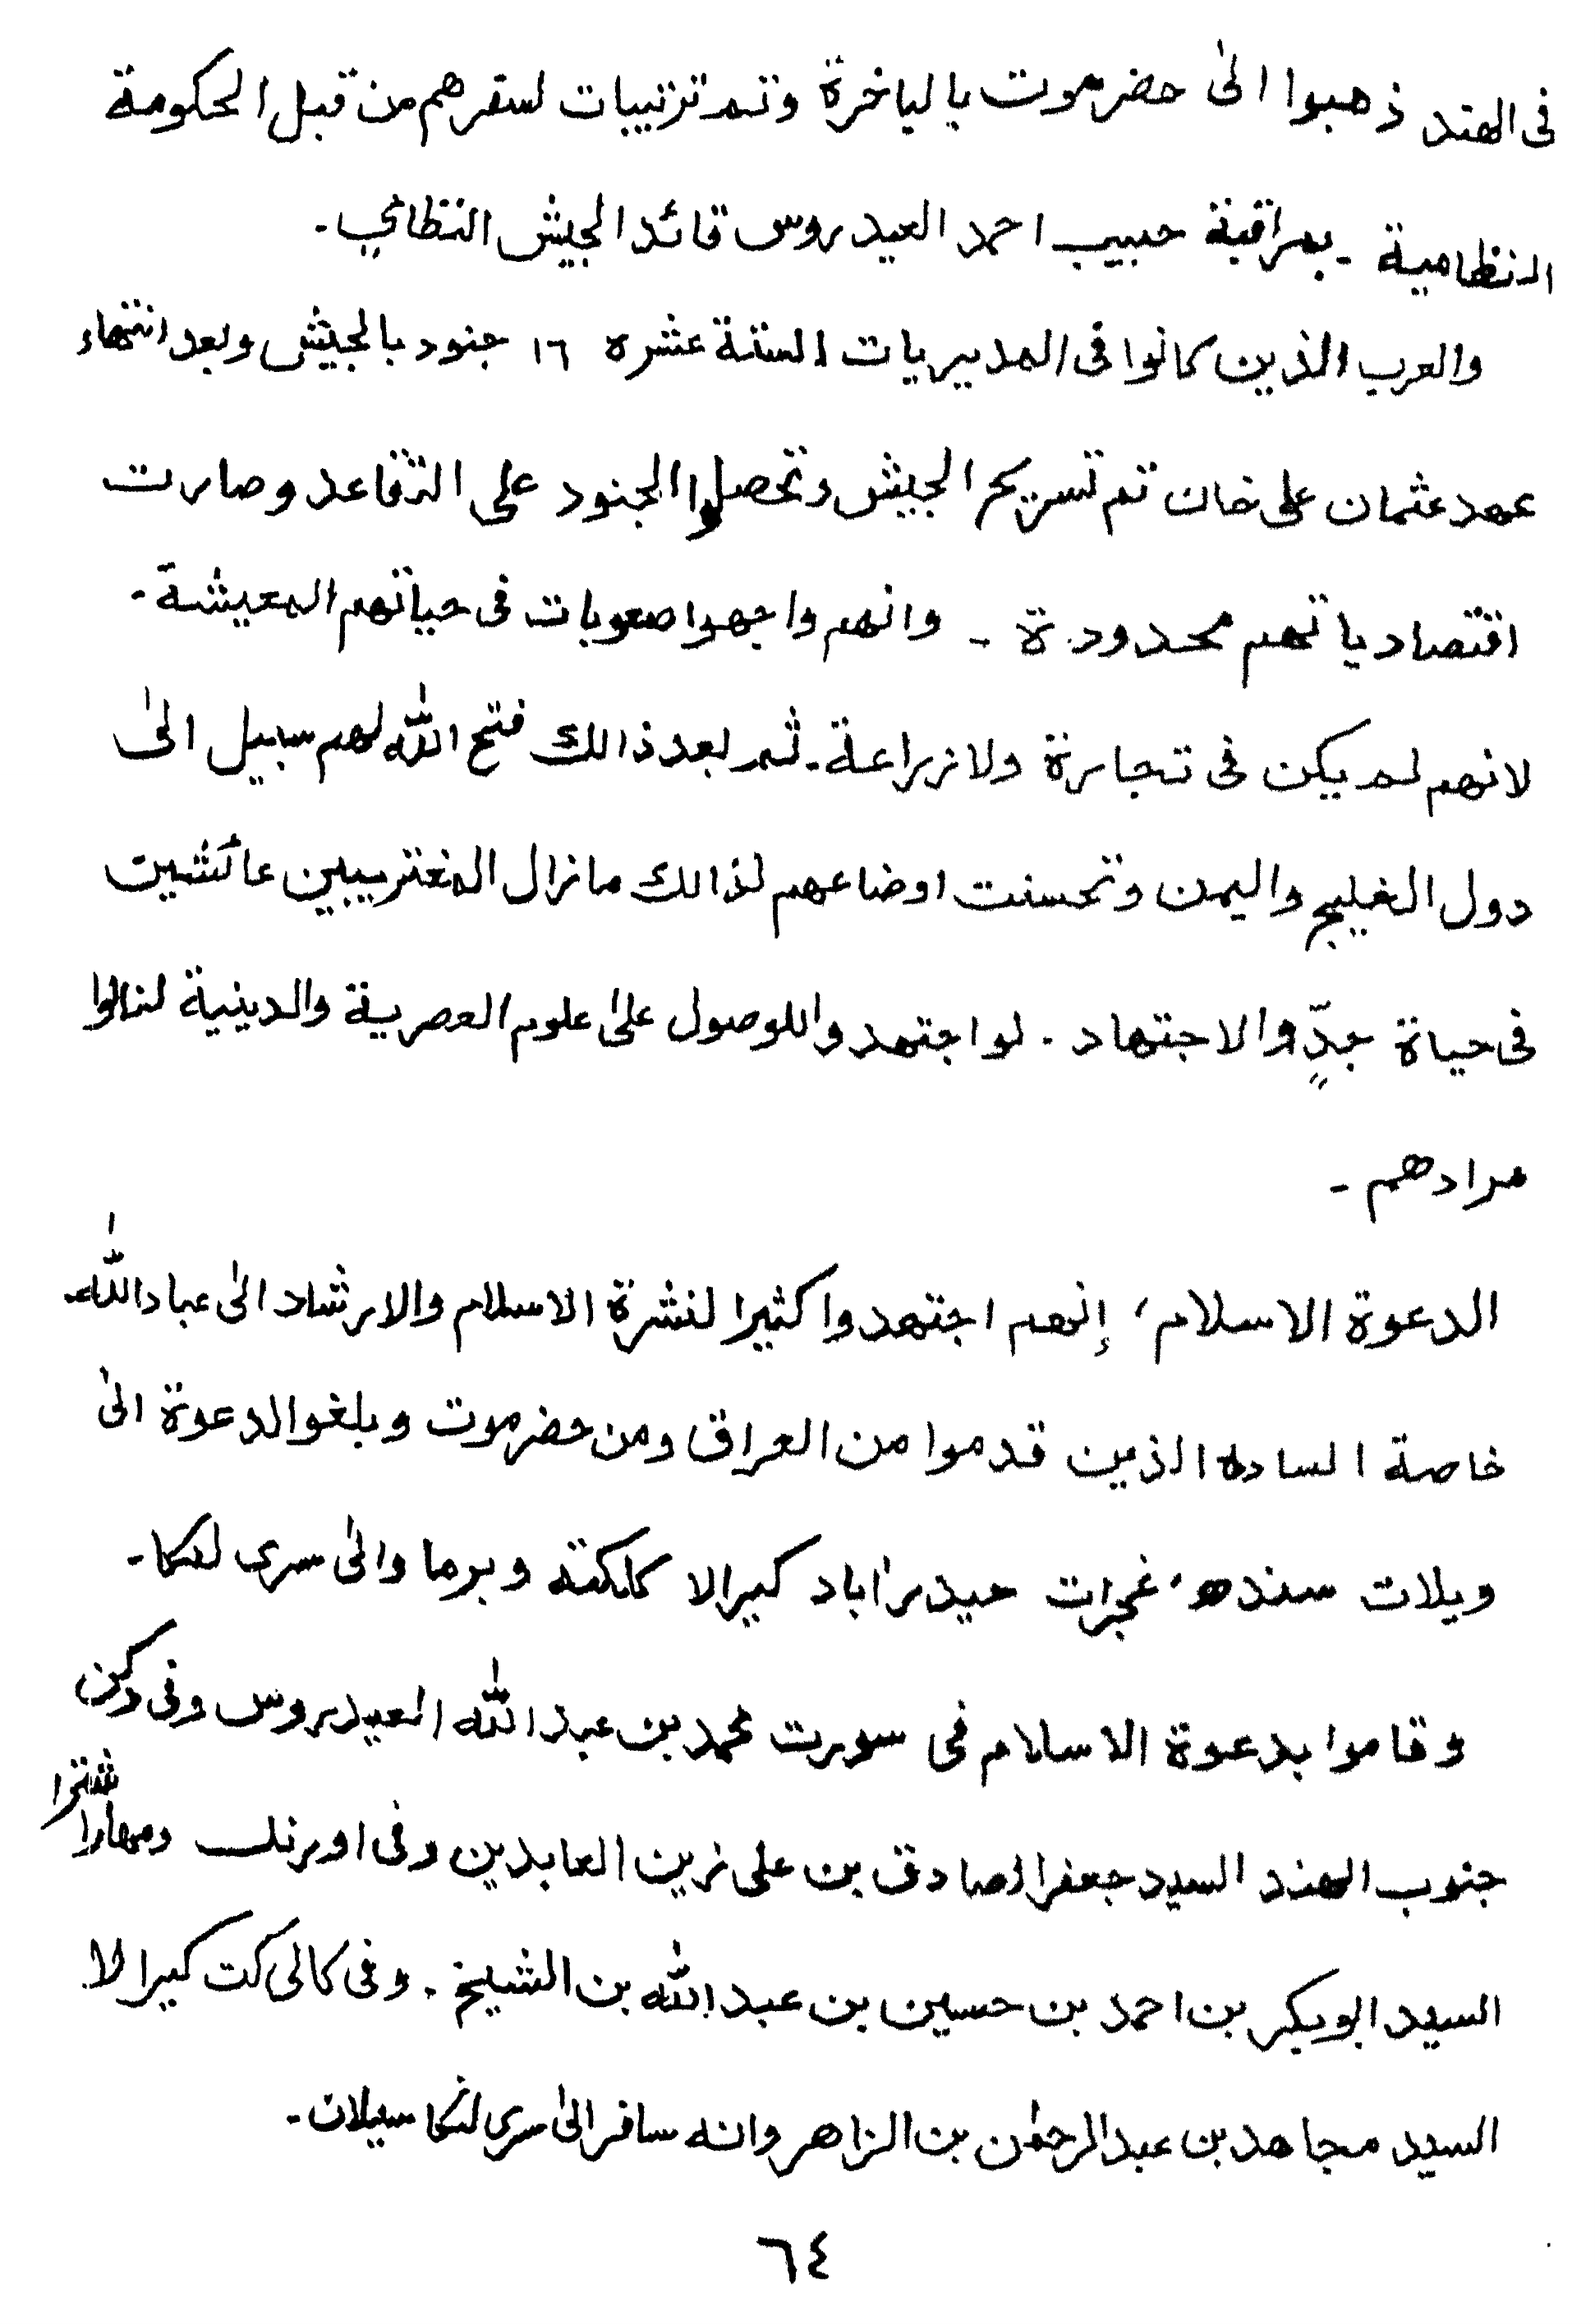 فى الهند ذهبوا الىٰ حضرموت بالياخرة وتم ترتيبات لسقرهم من قبل الحكومة
النظامية - بمراقبة حبيب احمد العيدروس قائد الجيش النظامي -
والعرب الذين كانوا فى المديريات الستة عشره ١٦ جنود بالجيش وبعد انتهاء
عهد عثمان على خان تم تسريحر الجيش وتحصلوا الجنود على التقاعد وصارت
اقتصادياتهم محدودة - وانهم واجهوا صعوبات فى حياتهم المعيشة -
لانهم لم يكن فى تجارة ولا زراعة - ثم بعد ذالك فتح اللّٰه لهم سبيل الىٰ
دول الخليج واليمن وتحسنت اوضاعهم لذالك مازال المغتربيين عائشين
فى حياة جدٍّ والاجتهاد . لو اجتهدوا للوصول علىٰ علوم العصرية والدينية لنالوا
مرادهم -
الدعوة الاسلام، إنهم اجتهدوا كثيرا لنشرة الاسلام والارشاد الىٰ عباد اللّٰه -
خاصة الساده الذين قدموا من العراق ومن حضرموت وبلغوالدعوة الىٰ
ويلات سنده، غجرات حيدرآباد كيرالا كلكته وبرما والىٰ سرى لنكا -
وقاموا بدعوة الاسلام فى سورت محمد بن عبد اللّٰه العيدروس وفى دكن
جنوب الهند السيد جعفر الصادق بن على زين العابدين وفى اورنك ومهاراشترا
السيد ابوبكر بن احمد بن حسين بن عبد اللّٰه بن الشيخ . وفى كالى كت كيرالا
السيد مجاهد بن عبد الرحمٰن بن الزاهر وانه سافر الىٰ سرى لنكا سيلان -
٦٤